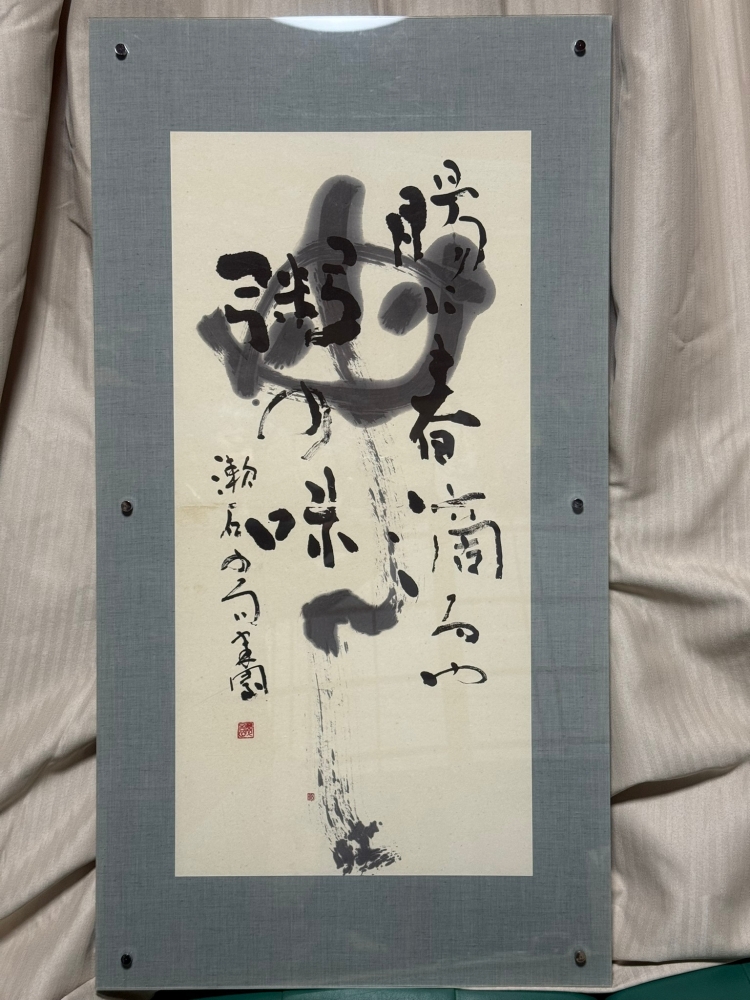 腸に春滴るや
粥の味
漱石の句